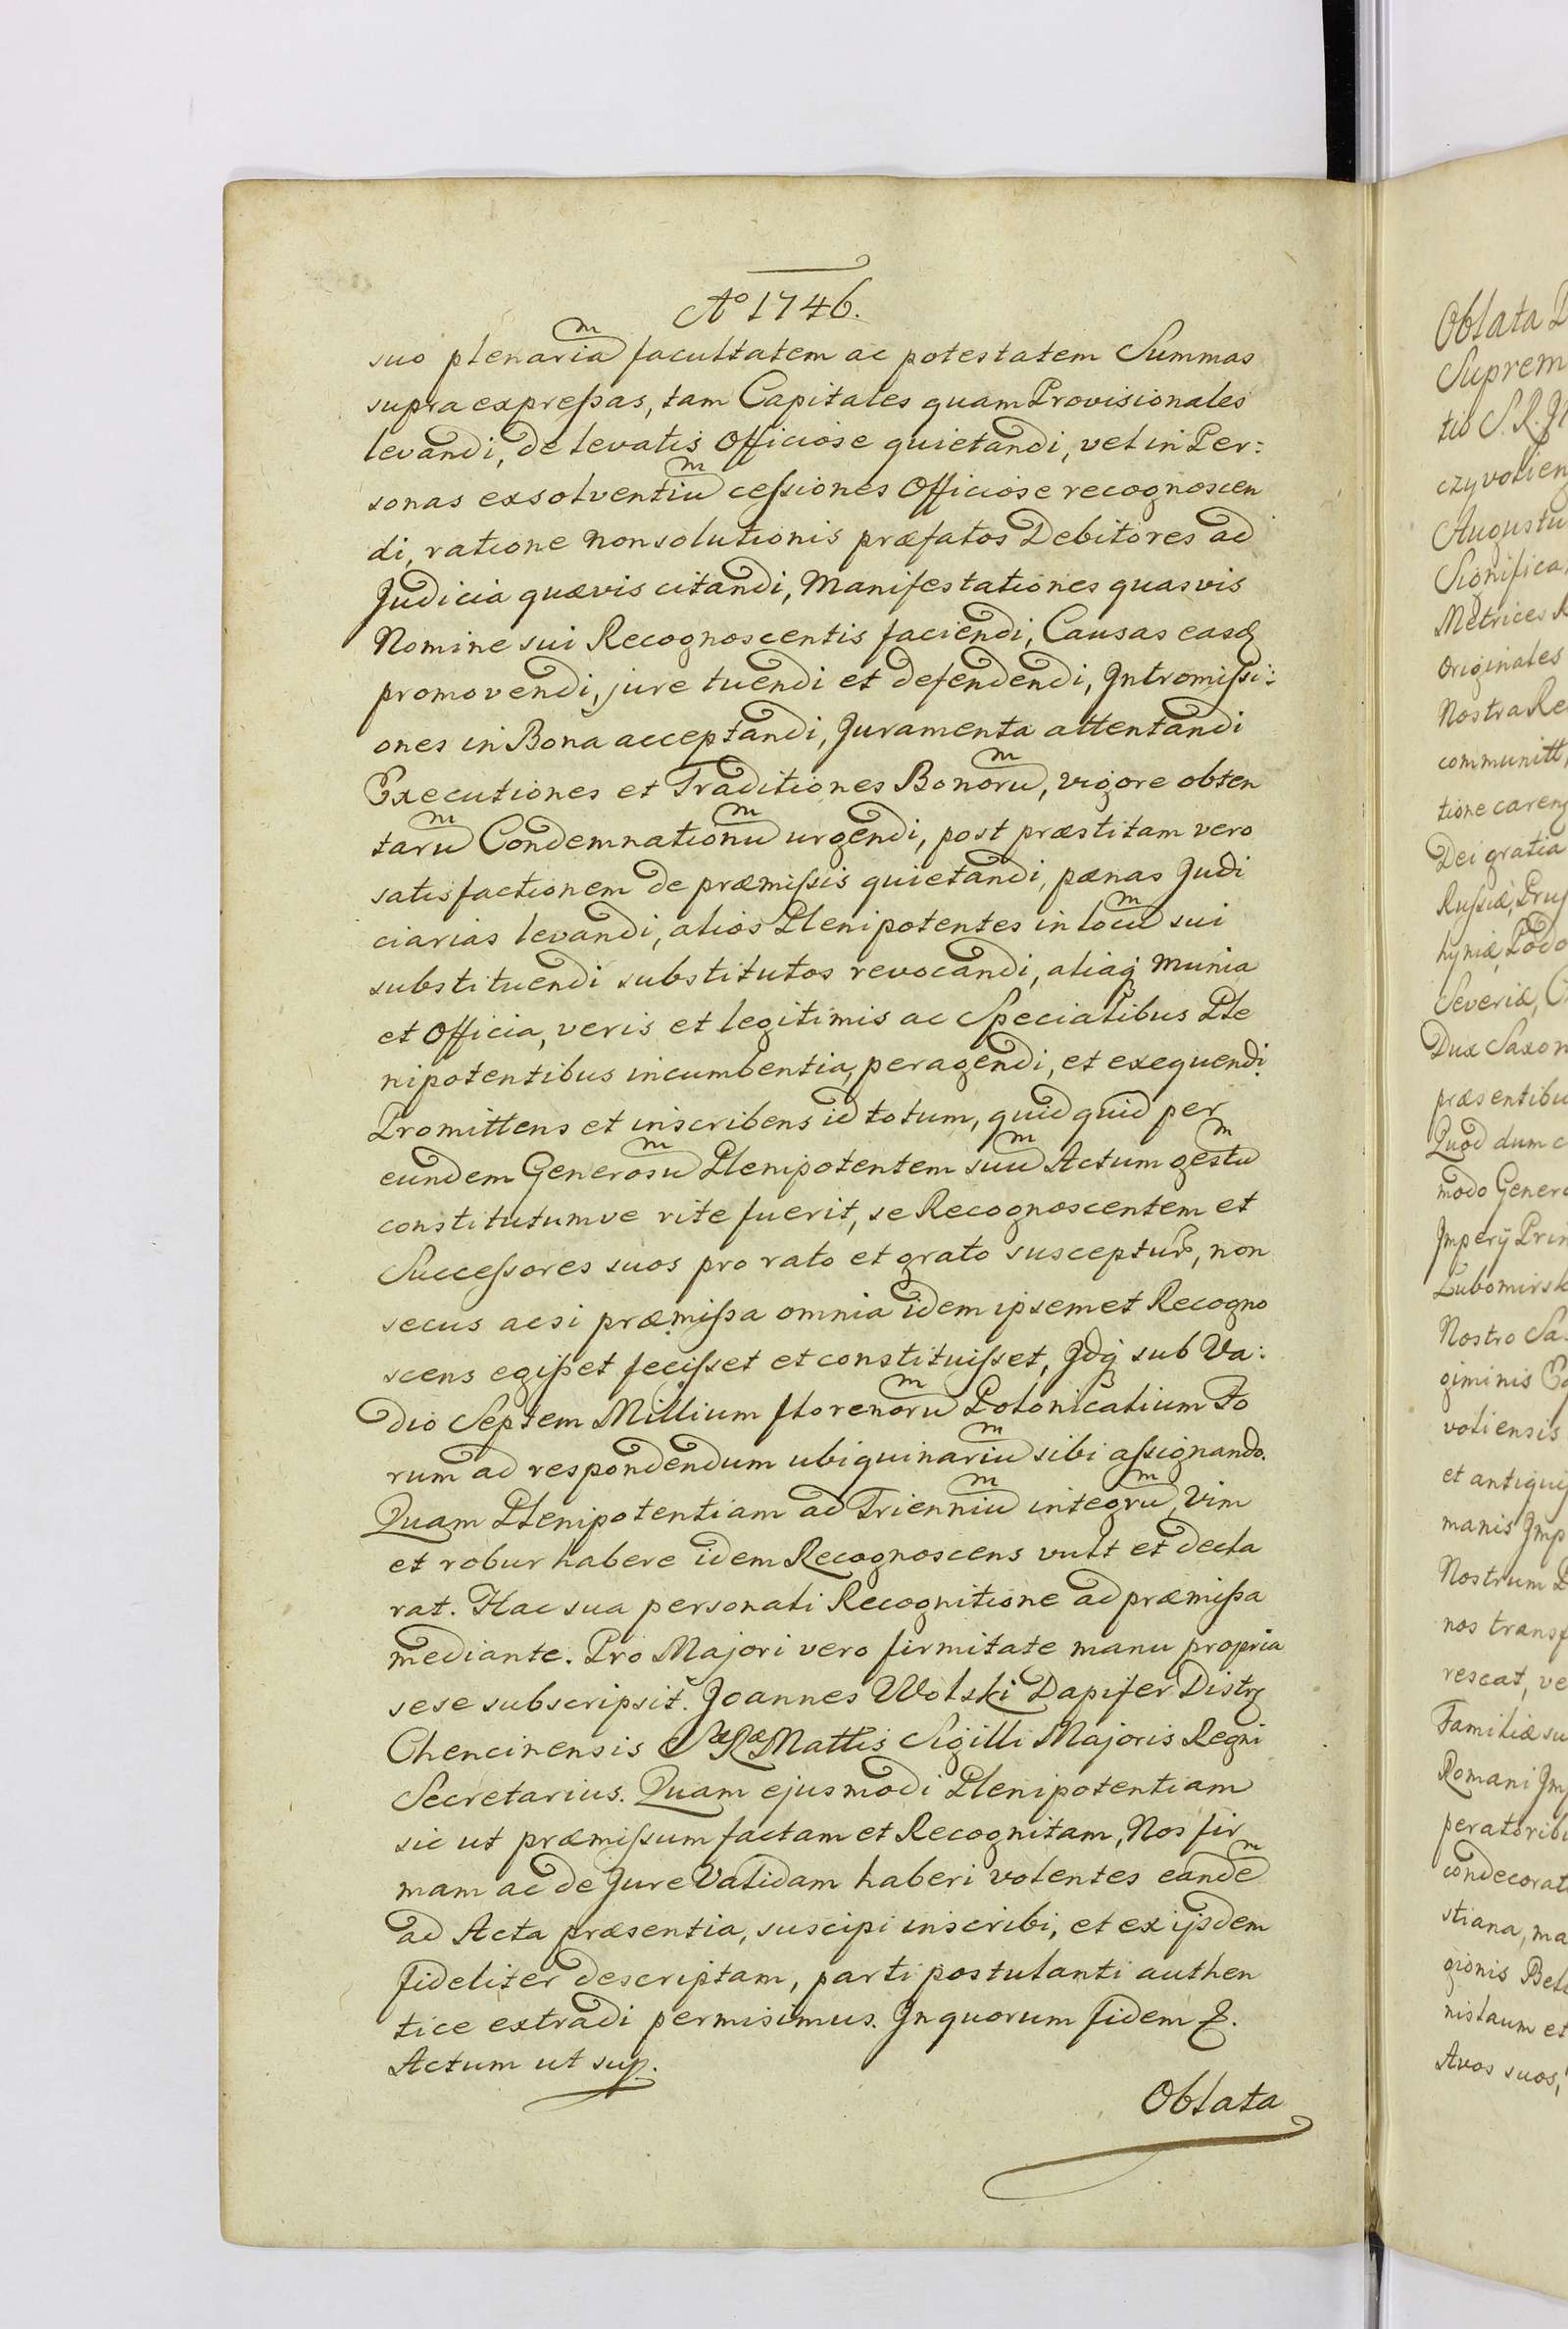 Aᵒ 1746.
suo plenariãᵐ facultatem ac potestatem Summas
supra expreſsas, tam Capitales quam Provisionales
levandi, de levatis Officiose quietandi, vel in Per:
sonas exsolventiuᵐ ceſsiones Officiose recognoscen
di, ratione non solutionis præfatos Debitores ad
Judicia quævis citandi, Manifestationes quasvis
Nomine sui Recognoscentis faciendi, Causas easq
promovendi, jure tuendi et defendendi, Intromiſsi:
ones in Bona acceptandi, Juramenta attentandi
Executiones et Traditiones Bonoruᵐ, vigore obten
taruᵐ Condemnationuᵐ urgendi, post præstitam vero
satisfactionem de præmiſsis quietandi, pænas Judi
ciarias levandi, alios Plenipotentes in locuᵐ sui
substituendi substitutos revocandi, aliaq Munia
et Officia, veris et legitimis ac Specialibus Ple
nipotentibus incumbentia, peragendi, et exequendi.
Promittens et inscribens id totum, quid quid per
eundem Generosuᵐ Plenipotentem suuᵐ Actum gestuᵐ
constitutumve rite fuerit, se Recognoscentem et
Succeſsores suos pro rato et grato suscepturos, non
secus acsi præmiſsa omnia idem ipsemet Recogno
scens egiſset feciſset et constituiſset, Idq sub Va:
dio Septem Millium florenoruᵐ Polonicalium Fo
rum ad respondendum ubiquinariuᵐ sibi aſsignando.
Quam Plenipotentiam ad Trienniuᵐ integruᵐ, Vim
et robur habere idem Recognoscens vult et decla
rat. Hac sua personali Recognitione ad præmiſsa
mediante. Pro Majori vero firmitate manu propria
sese subscripsit. Joannes Wolski Dapifer Distr
Chencinensis SæRæMattis Sigilli Majoris Regni
Secretarius. Quam ejusmodi Plenipotentiam
sic ut præmiſsum factam et Recognitam, Nos fir
mam ac de Jure Validam haberi volentes eandeᵐ
ad Acta præsentia, suscipi inscribi, et ex ijsdem
fideliter descriptam, parti postulanti authen
tice extradi permisimus. In quorum fidem &.
Actum ut sup.
Oblata
Oblata
Suprem
tis S. R. I
czyvolien
Augustu
Significa
Metrices
Originales
Nostra Re
communitt,
tione careng
Dei gratia
Ruſsiæ, Pruſ
hyniæ, Podo
Severiæ,
Dux Saxon
præsentibu
Quod dum c
modo Genero
Imperij Prin
Lubomirsk
Nostro Sa
giminis
voliensis
et antiquiſ
manis Imp
Nostrum
nos transf
rescat, ve
Familiæ su
Romani Imp
peratoribu
condecorat
stiana, ma
gionis Bel
nislaum et
Avos suos,